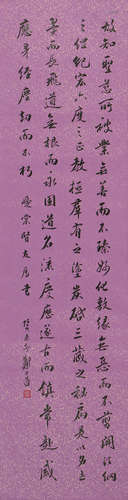 故知聖慈所被業無善而不臻妙化所敷緣無惡而不剪開法綱
之綱紀宏六度之正教拯群有之塗炭啟三藏之秘扃是以名無
翼而長飛道無根而永固道名流慶歷遂古而鎮常赴感
應身經塵劫而不朽